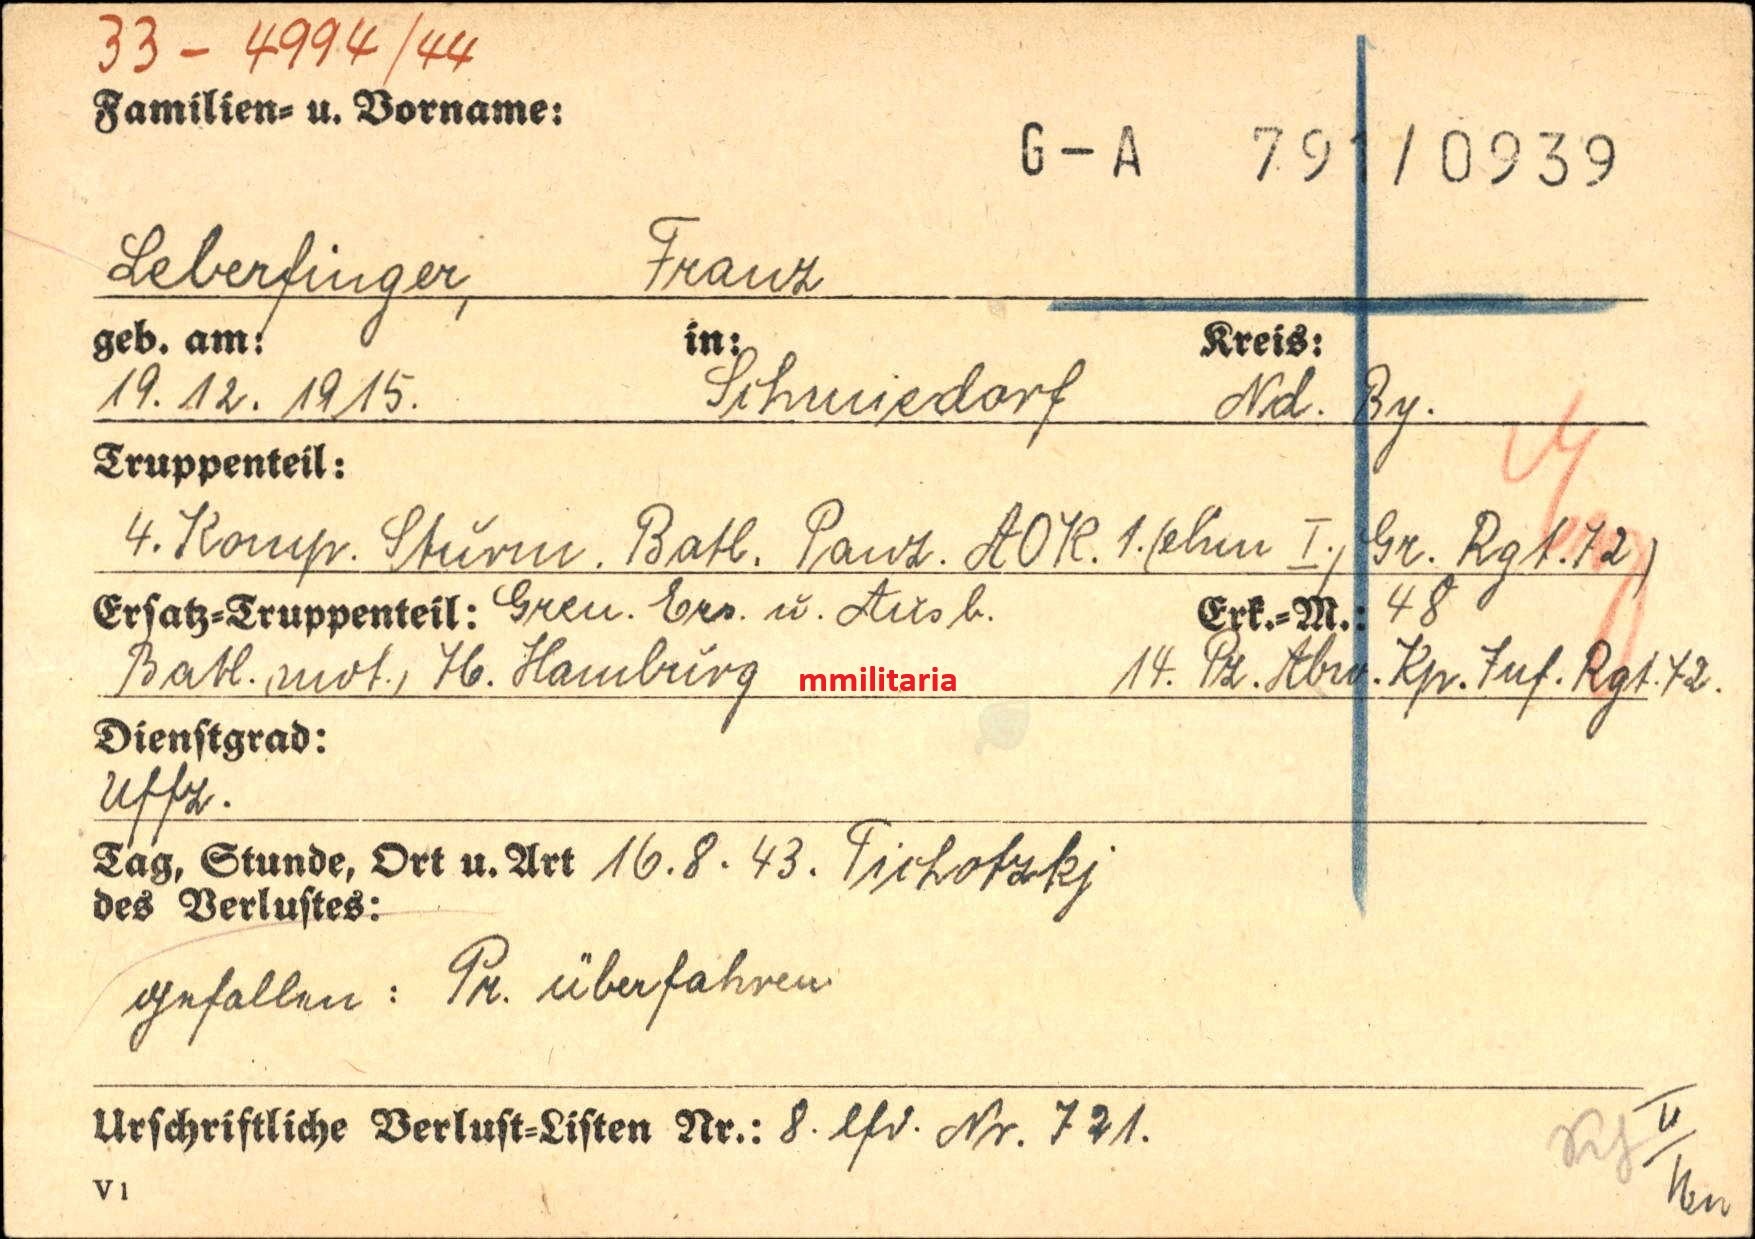 33 - 4994/44
Familien- u. Vorname:
G-A 791/0939
Leberfinger, Franz
geb. am: in: Kreis:
19.12.1915. Schmiedorf Nd. By.
Truppenteil:
4. Komp. Sturm. Batl. Panz. AOK. 1. (ehm I., Gr. Rgt. 72)
Ersatz-Truppenteil: Gren. Ers. u. Ausb. Erk.-M.: 48
Batl. mot., 76. Hamburg mmilitaria 14. Pz. Abw. Kp. Inf. Rgt. 72.
Dienstgrad:
Uffz.
Tag, Stunde, Ort u. Art 16.8.43. Tichotzkj
des Verlustes:
gefallen: Pz. überfahren
Urschriftliche Verlust-Listen Nr.: 8. lfd. Nr. 721.
V 1